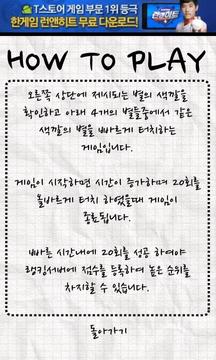 T스토어 게임 부문 1위 등극
한게임 런앤히트 무료 다운로드!
HOW TO PLAY
오른쪽 상단에 제시되는 별의 색깔을
확인하고 아래 4개의 별들중에서 같은
색깔의 별을 빠르게 터치하는
게임입니다.
게임이 시작하면 시간이 증가하며 20회를
올바르게 터치 하였을때 게임이
종료됩니다.
빠른 시간내에 20회를 성공 하여야
랭킹서버에 점수를 등록하여 높은 순위를
차지할 수 있습니다.
돌아가기